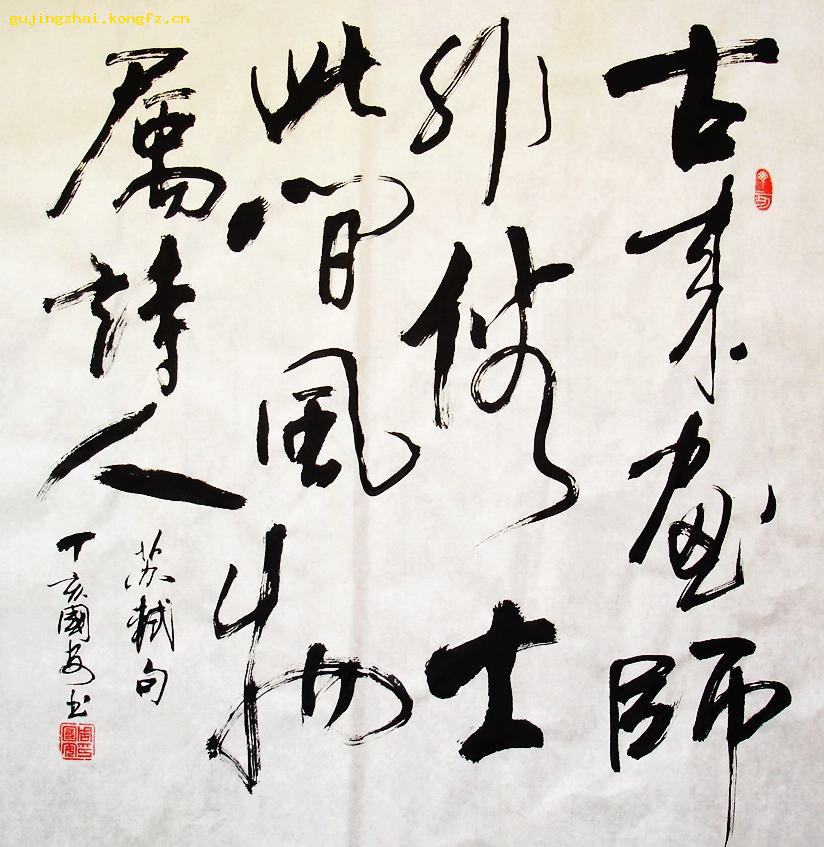 gujingzhai.kongfz.cn
古来画師
非俗士
此間風物
属詩人
苏軾句
丁亥國安书